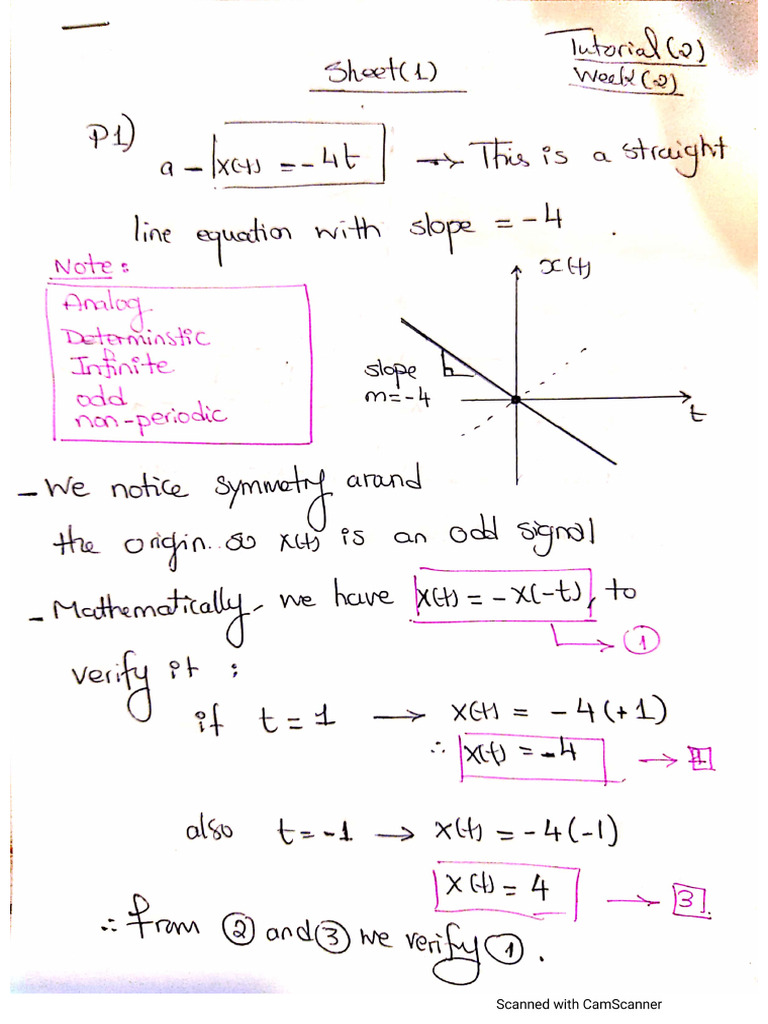 Tutorial(2)
Sheet(1)
Week(2)
P1)
a - x(t) = -4t → This is a straight
line equation with slope = -4 .
Note:
x(t)
Analog
Determinstic
Infinite
odd
non-periodic
slope
m=-4
t
- We notice symmetry arand
the origin.. so x(t) is an odd signal
- Mathematically, we have x(t) = - x(-t), to
→ 1
verify it :
if t = 1 → x(t) = -4(+1)
∴ x(t) = -4 →
also t = -1 → x(t) = -4(-1)
x(t) = 4 → 3
∴ from 2 and 3 we verify 1 .
Scanned with CamScanner